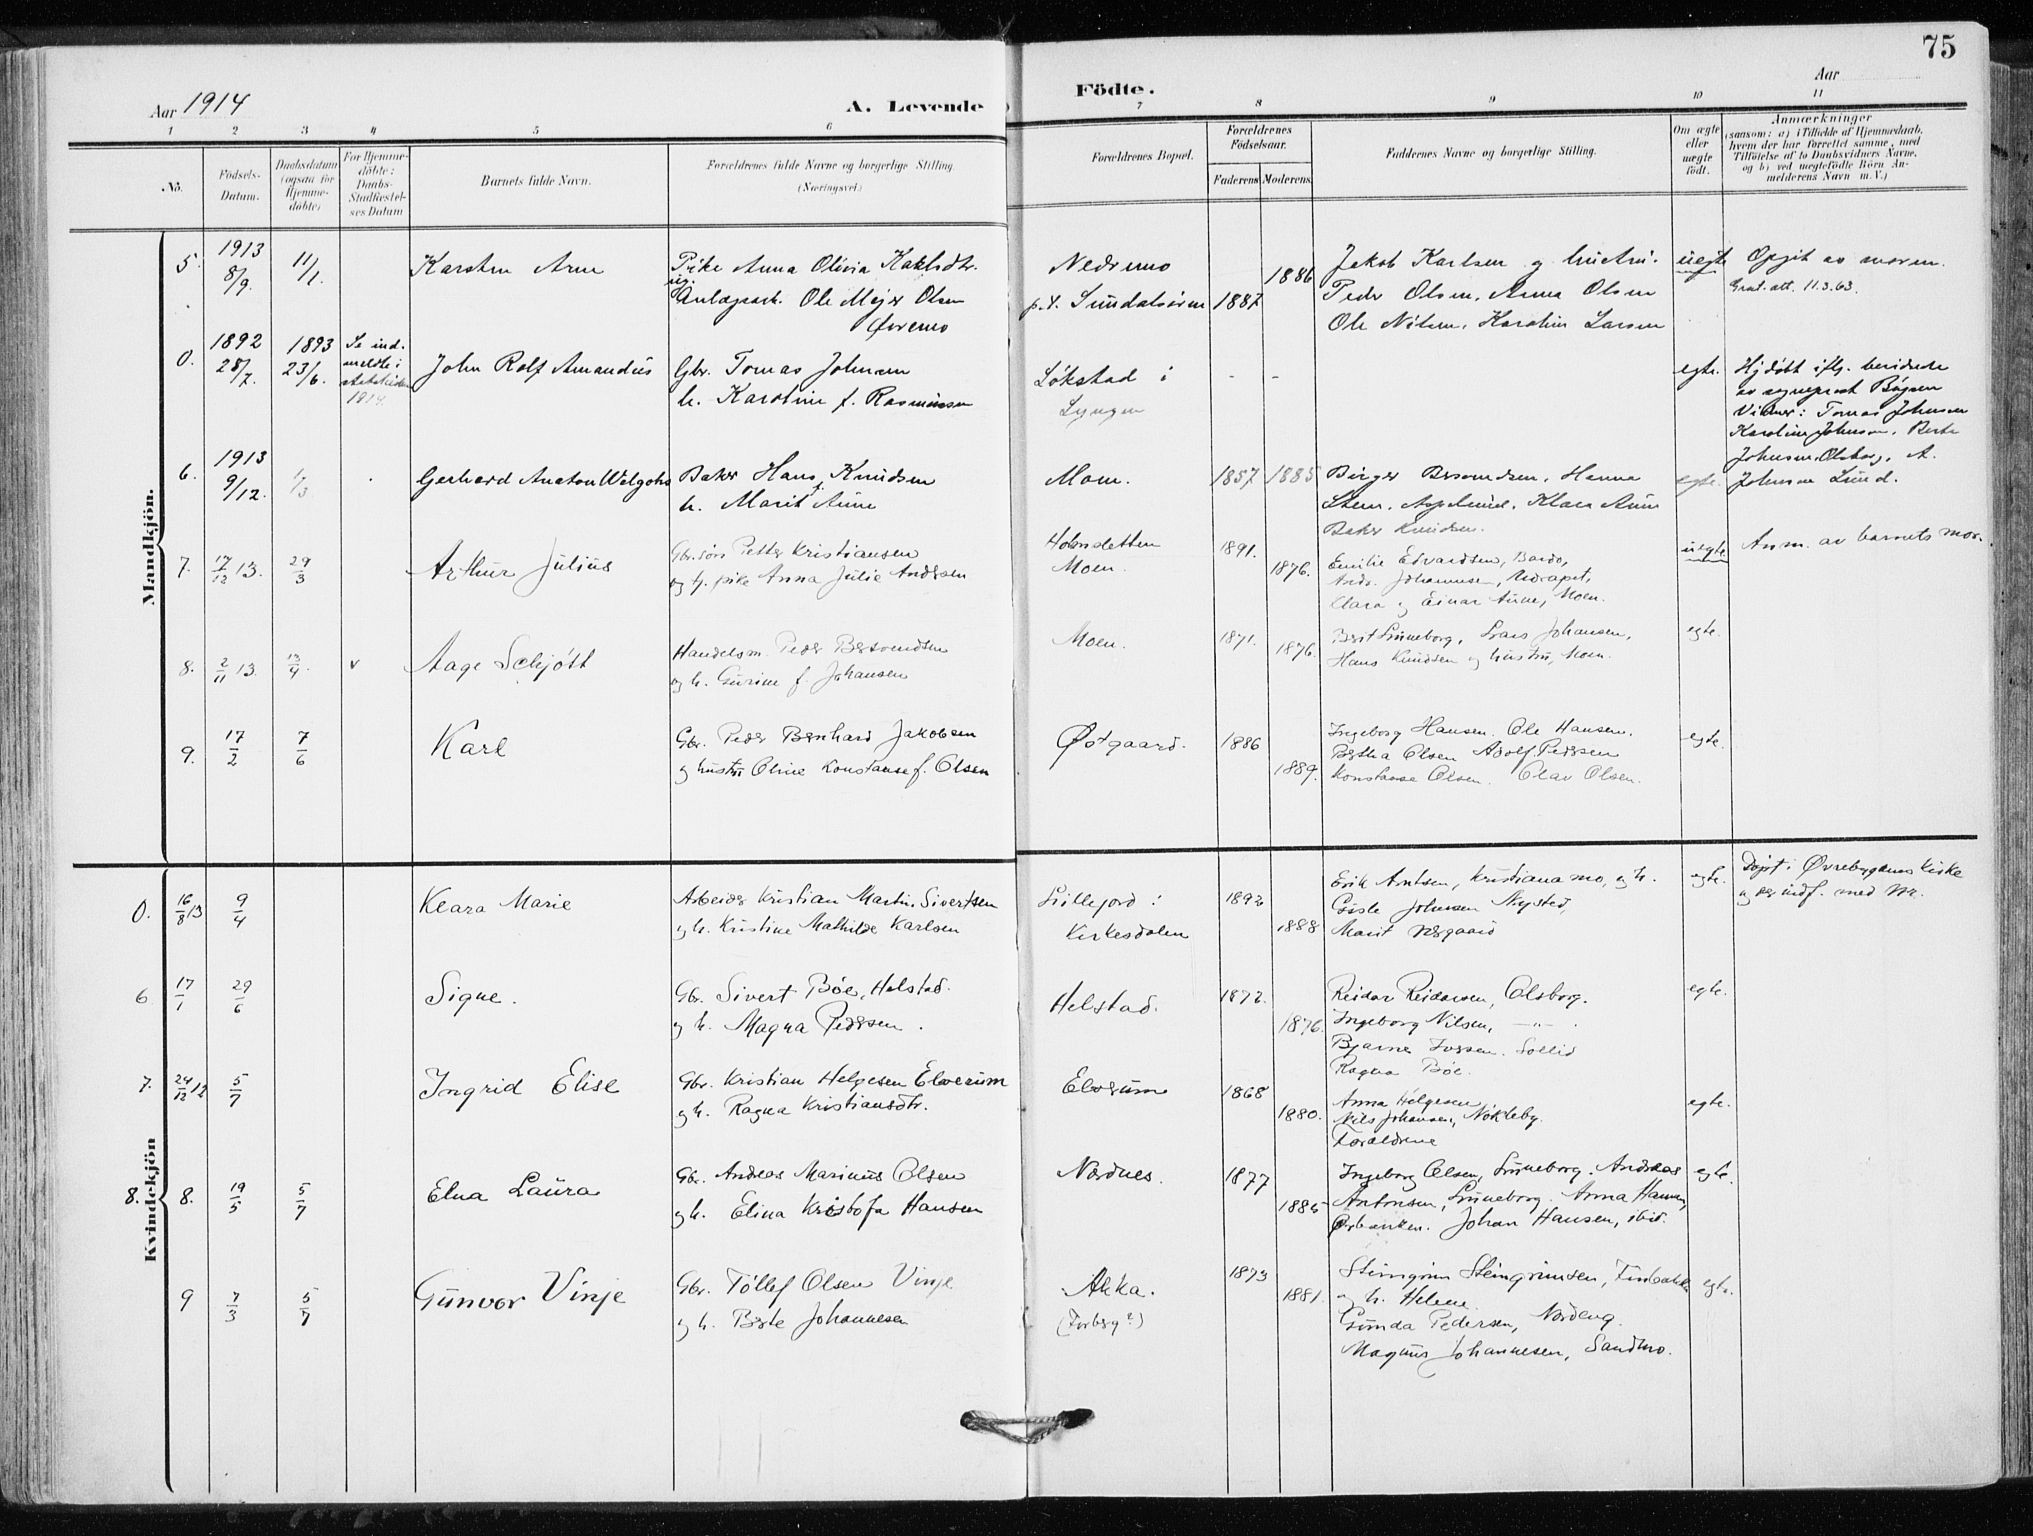 75
Aar 1914
A. Levende
Födte.
Aar
1 2 3 4 5 6 7 8 9 10 11
No.
Födsels-
Datum.
Daabsdatum
(ogsaa for
Hjemme-
döbte)
For Hjemme-
döbte:
Daabs-
Stadfæstel-
ses Datum
Barnets fulde Navn.
Forældrenes fulde Navne og borgerlige Stilling.
(Næringsvei.)
Forældrenes Bopæl.
Forældrenes
Födselsaar.
Faderens Moderens
Faddernes Navne og borgerlige Stilling.
Om ægte
eller
uægte
födt.
Anmærkninger
(saasom: a) i Tilfælde af Hjemmedaab,
hvem der har forrettet samme, med
Tilföielse af to Daabsvidners Navne,
og b) ved uægtefödte Börn An-
melderens Navn m. V.)
Mandkjön.
5. 1913 8/9. 11/1. Karsten Arne
Pike Anna Olivia
ug. Anlægsarb. Ole Mejer Olsen
Øvremo
Nedremo
p.t. Sundalsøren 1887 1886
Jakob Karlsen og hustru.
Peder Olsen, Anna Olsen
Ole Nilsen, Karoline Larsen
uegte
Opgit av moren.
11.3.63.
0. 1892 28/7. 1893 23/6. Se ind-
meldte i
1914.
John Rolf Amandus
Gbr. Tomas Johnsen
h. Karoline f. Rasmussen
Løkstad i
Lyngen
- -
egte.
Hjdøbt iflg. bevidnelse
av sogneprest
Vidner: Tomas Johnsen
Karoline Johnsen, Berte
Johnsen, Olsborg, A.
Johnsen Lund.
6. 1913 9/12. 1/3 Gerhard Anaton
Baker Hans Knudsen
h. Marit Aune
Moen. 1857 1885
Birger Bersvendsen, Hanna
Steen, Klara Aune
Baker Knudsen.
egte.
7. 17/12 13. 29/3 Arthur Julius
Gbr.søn Petter Kristiansen
og t. pike Anna Julie Andersen
Holmsletten
Moen. 1891. 1876.
Emilie Edvardsen, Bardo,
Andr. Johannesen,
Clara og Einar Aune, Moen.
uegte
Anm. av barnets mor.
8. 2/11 13. 13/4. v Aage Schjøtt
Handelsm. Peder Bersvendsen
og h. Gurine f. Johansen
Moen. 1871. 1876.
Berit Luneborg, Lars Johansen,
Hans Knudsen og hustru, Moen.
egte.
9. 17/2 7/6 Karl
Gbr. Peder Bernhard Jakobsen
og hustru Oline Konstanse f. Olsen
Østgaard. 1886 1889.
Ingeborg Hansen. Ole Hansen.
Bertha Olsen Adolf Pedersen
Konstanse Olsen. Olav Olsen.
egte.
Kvindekjön
0. 16/8 13 9/4 Klara Marie
Arbeider Kristian Martin Sivertsen
og h. Kristine Mathilde Karlsen
Lillefjord i
Kirkesdalen 1892 1888
Erik Arntsen, Kristiana mo, og h.
Gisle Johnsen Nysted,
Marit
egte.
Døpt i Øvrebygdens kirke
og der indf. med Nr.
6 17/1 29/6 Signe.
Gbr. Sivert Bøe, Helstad.
og h. Magna Pedersen.
Helstad. 1872. 1876.
Reidar Reidarsen, Olsborg.
Ingeborg Nilsen, — " — .
Bjarne Iversen. Sollid
Ragna Bøe.
egte.
7. 24/12 12 5/7 Ingrid Elise
Gbr. Kristian Helgesen Elverum
og h. Ragna Kristiansdtr.
Elverum 1868 1880.
Anna Helgesen
Nils Johansen, Nøkleby.
Forældrene
egte.
8. 8. 19/5 5/7 Elna Laura
Gbr. Andreas Marinus Olsen
og h. Elina Kristofa Hansen
Nordnes. 1877 1885
Ingeborg Olsen, Luneborg. Andreas
Antonsen, Luneborg. Anna Hansen,
Johan Hansen, ibid.
egte.
9 7/3 5/7 Gunvor Vinje
Gbr. Tøllef Olsen Vinje
og h. Berte Johannesen
Akka.
(Forberg?) 1873 1881.
Steingrim Steingrimsen,
og h. Helene.
Gunda Pedersen, Nordeng.
Magnus Johannesen, Sandmo.
egte.